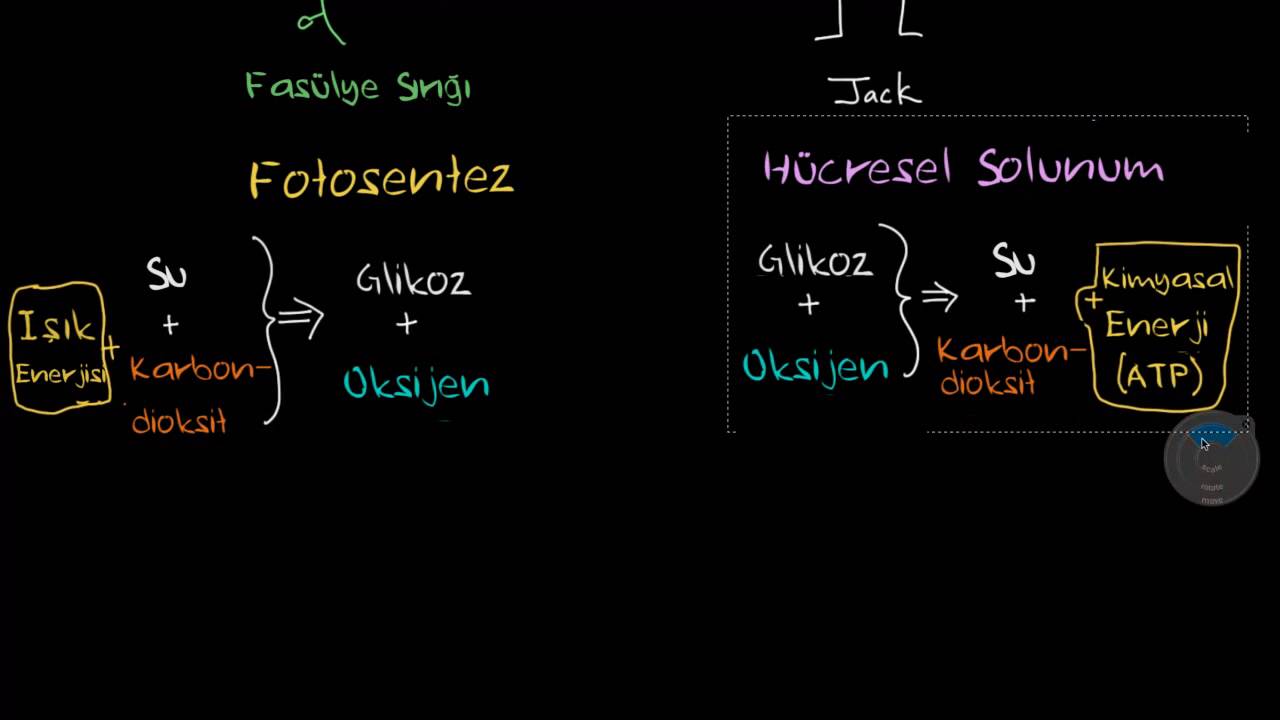 Fasülye Sırığı
Jack
Fotosentez
Hücresel Solunum
Işık
Enerjisi
+
Su
+
Karbon-
dioksit
⇒
Glikoz
+
Oksijen
Glikoz
+
Oksijen
⇒
Su
+
Karbon-
dioksit
+
Kimyasal
Enerji
(ATP)
scale
rotate
move